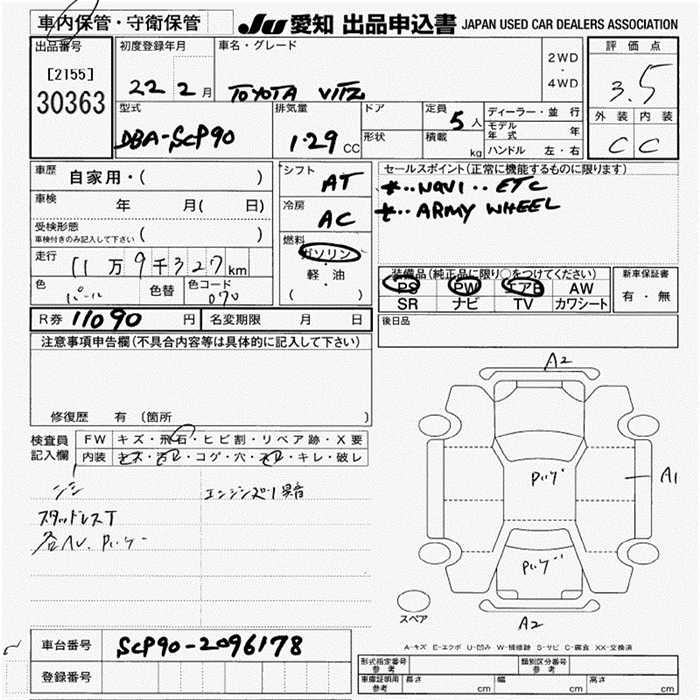 車内保管・守衛保管
JU 愛知 出品申込書 JAPAN USED CAR DEALERS ASSOCIATION
出品番号
[2155]
30363
初度登録年月
22 2 月
車名・グレード
TOYOTA VITZ
2WD
・
4WD
評価点
3.5
外装 内装
C C
型式
DBA-SCP90
排気量
1.29 CC
ドア
形状
定員 5 人
積載 kg
ディーラー・並行
モデル年式 年
ハンドル 左・右
車歴
自家用・( )
車検
年 月( 日)
受検形態
車検付きのみ記入して下さい ( )
走行
11万9千327km
色 パール 色替 色コード 070
シフト
AT
冷房
AC
燃料
ガソリン
・
軽・油
( )
セールスポイント(正常に機能するものに限ります)
*・・NAVI・・ETC
*・・ARMY WHEEL
装備品(純正品に限り○をつけてください)
PS PW エアB AW
SR ナビ TV カワシート
新車保証書
有・無
R券 11090 円 名変期限 月 日
後日品
注意事項申告欄(不具合内容等は具体的に記入して下さい)
修復歴 有(箇所 )
検査員
記入欄
FW キズ・飛石・ヒビ割・リペア跡・X要
内装 キズ・汚レ・コゲ・穴・スレ・キレ・破レ
スタッドレスT
A2
Pいケ
A1
Pいケ
A2
スペア
A-キズ E-エクボ U-凹み W-補修跡 S-サビ C-腐食 XX-交換済
車台番号 SCP90-2096178
登録番号
形式指定番号
参考
類別区分番号
参考
車庫証明用
参考
長さ cm 幅 cm 高さ cm